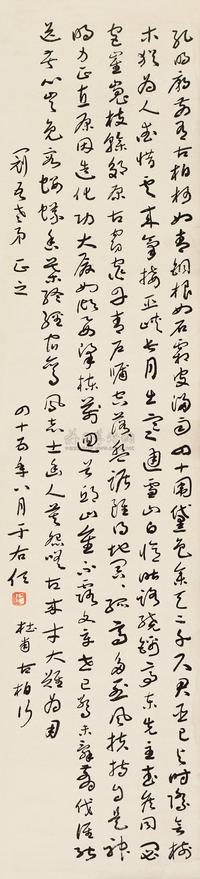 孔明廟前有古柏柯如青銅根如石霜皮溜雨四十圍黛色參天二千尺君臣已與時際會樹
木猶為人愛惜雲來氣接巫峽長月出寒通雪山白憶昨路繞錦亭東先主武侯同閟
宮崔嵬枝幹郊原古窈窕丹青戶牖空落落盤踞雖得地冥冥孤高多烈風扶持自是神
明力正直原因造化功大廈如傾要梁棟萬牛迴首丘山重不露文章世已驚未辭翦伐誰能
送苦心豈免容螻蟻香葉終經宿鸞鳳志士幽人莫怨嗟古來材大難為用
老弟正之
四十五年八月于右任
杜甫古柏行